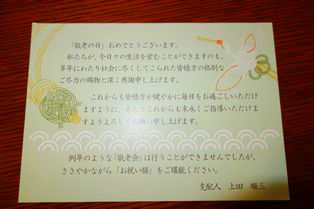 「敬老の日」おめでとうございます。
私たちが、今日々の生活を営むことができますのも、
多年にわたり社会に尽くしてこられた皆様方の格別な
ご尽力の賜物と深く感謝申し上げます。
これからも皆様方が健やかに毎日をお過ごしいただけ
ますように、そしてこれからも末永くご指導いただけま
すようよろしくお願い申し上げます。
例年のような「敬老会」は行うことができませんでしたが、
ささやかながら「お祝い膳」をご堪能ください。
支配人 上田 三